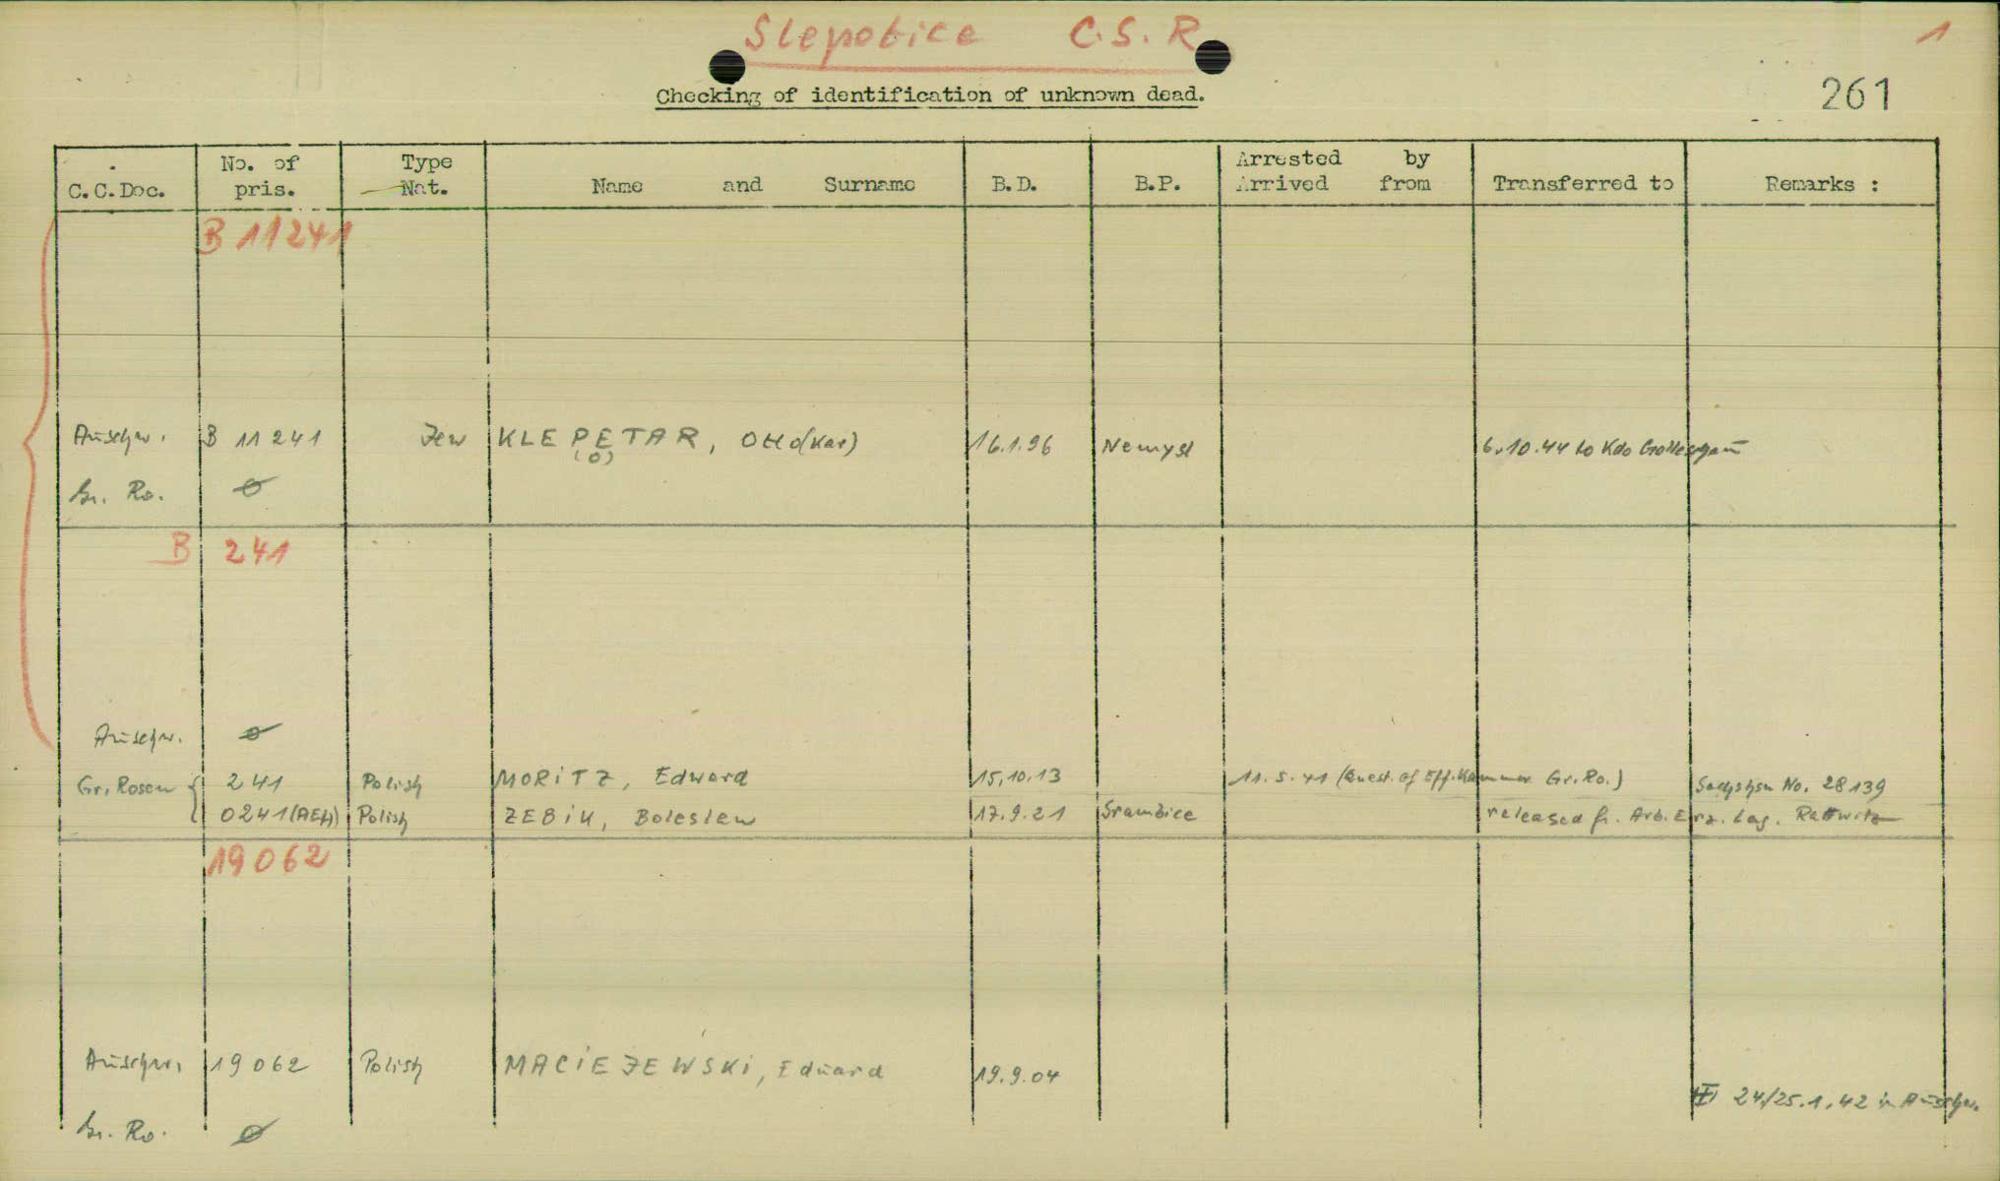 Slepotice C.S.R. 1
261
Checking of identification of unknown dead.
C.C.Doc. No. of pris. Type Nat. Name and Surname B.D. B.P. Arrested by Arrived from Transferred to Remarks :
B 11241
Auschw. B 11241 Jew KLEPETAR, Otto(kar) 16.1.96 Nemysl 6.10.44 to Kdo
(O)
Gr. Ro. ø
B 241
Auschw. ø
Gr. Rosen { 241 Polish MORITZ, Edward 15.10.13 11.5.41 (Quest. of Eff. Kammer Gr. Ro.) No. 28139
0241 (AEH) Polish ZEBIK, Boleslew 17.9.21 Srambice released fr. Arb. Erz. Lag. Rattwitz
19062
Auschw. 19062 Polish MACIEJEWSKI, Eduard 19.9.04 24/25.1.42 in Auschw.
Gr. Ro. ø